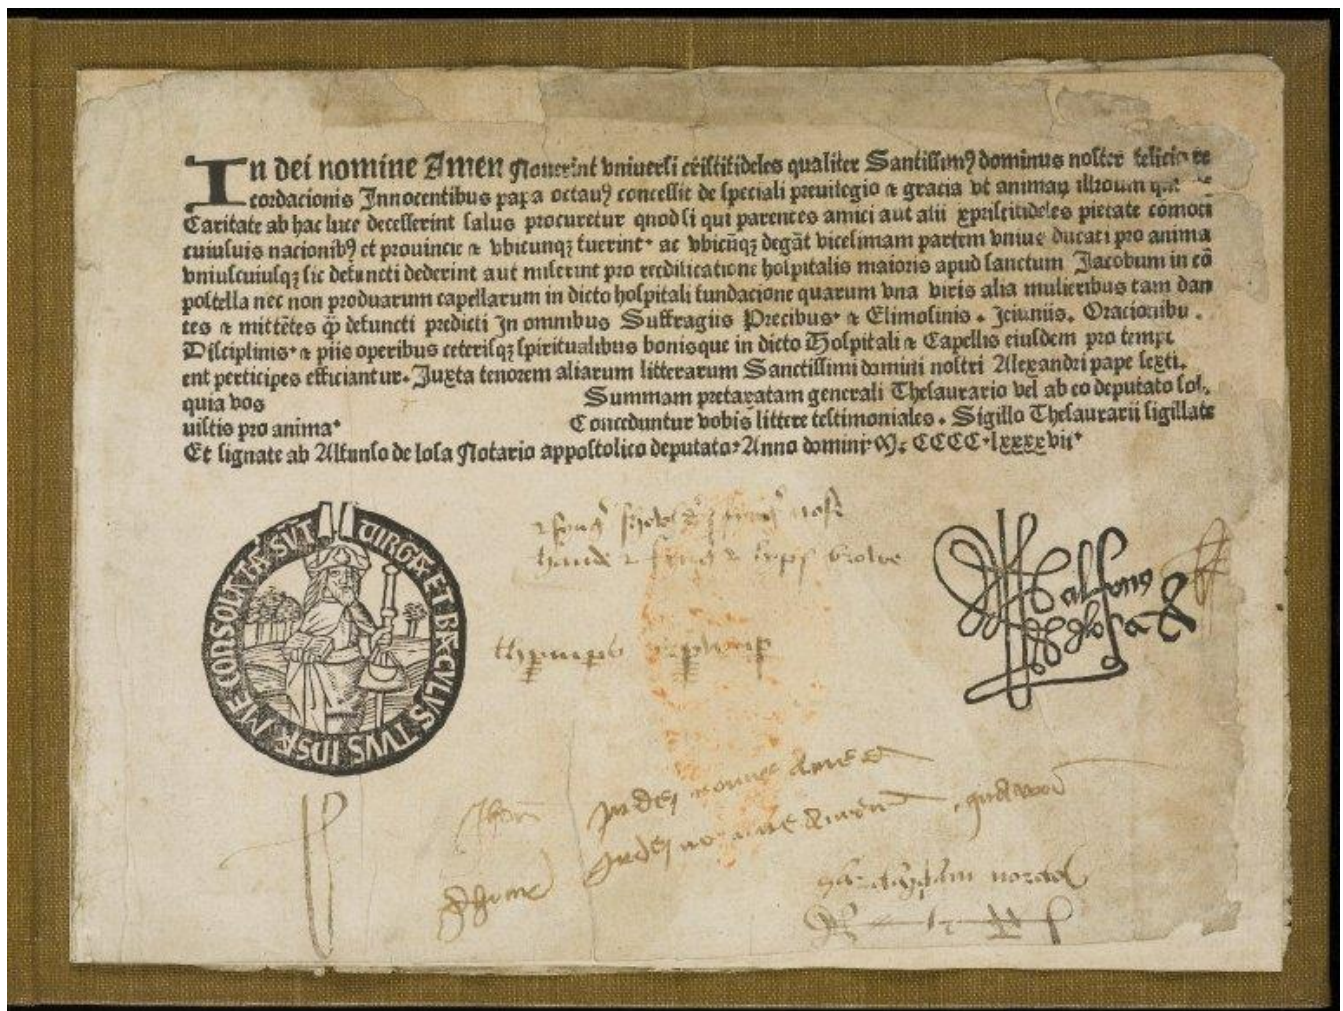 In dei nomine Amen Noverint vniversi cristifideles qualiter Santissimꝰ dominus noster felicis re
cordacionis Innocentibus papa octauꝰ concessit de speciali preuilegio ⁊ gracia vt animaꝝ illroum que
Caritate ab hac luce decesserint salus procuretur quod si qui parentes amici aut alii xpristifideles pietate cōmoti
cuiusuis nacionibꝰ et prouincie ⁊ vbicunqꝫ fuerint· ac vbicūqꝫ degāt vicesimam partem vnius ducati pro anima
vniuscuiusqꝫ sic defuncti dederint aut miserint pro reedificatione hospitalis maioris apud sanctum Jacobum in cō
postella nec non produarum capellarum in dicto hospitali fundacione quarum vna viris alia mulieribus tam dan
tes ⁊ mittētes ꝙ defuncti predicti In omnibus Suffragiis Precibus· ⁊ Elimosinis . Ieiuniis. Oracionibu .
Disciplinis· ⁊ piis operibus ceterisqꝫ spiritualibus bonisque in dicto Hospitali ⁊ Capellis eiusdem pro tempr
ent perticipes efficiantur. Juxta tenorem aliarum litterarum Sanctissimi domini nostri Alexandri pape sexti.
quia vos Summam prefaxatam generali Thesaurario vel ab eo deputato sol.
uistis pro anima· Conceduntur vobis littere testimoniales . Sigillo Thesaurarii sigillate
Et signate ab Alfunso de losa Notario appostolico deputato: Anno domini M. CCCC·lxxxxvii·
VIRGA ET BACVLVS TVVS IPSA ME CONSOLATA SVT
alfons
de losa
In dei nomine Amen
In dei nomine Amen